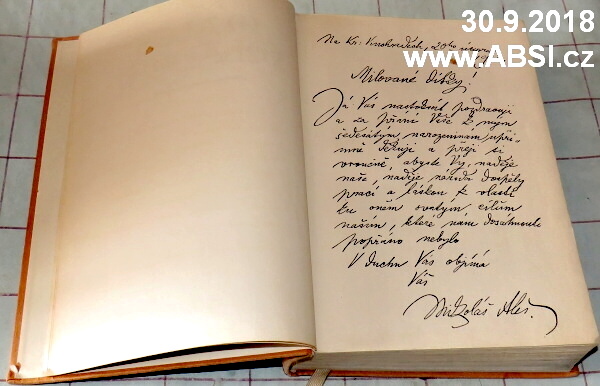 30.9.2018
www.ABSI.cz
Na Kr. Vinohradech, 20ho
Milované dítky!
Já Vás nastokrát pozdravuji
a za přání Vaše k mým
šedesátým narozeninám upří-
mně děkuji a přeji si
vroucně, abyste Vy, naděje
naše, naděje národa dospěly
prací a láskou k vlasti
ku oněm svatým cílům
našim, které nám dosáhnouti
popřáno nebylo
V duchu Vás objímá
Váš
Mikoláš Aleš.